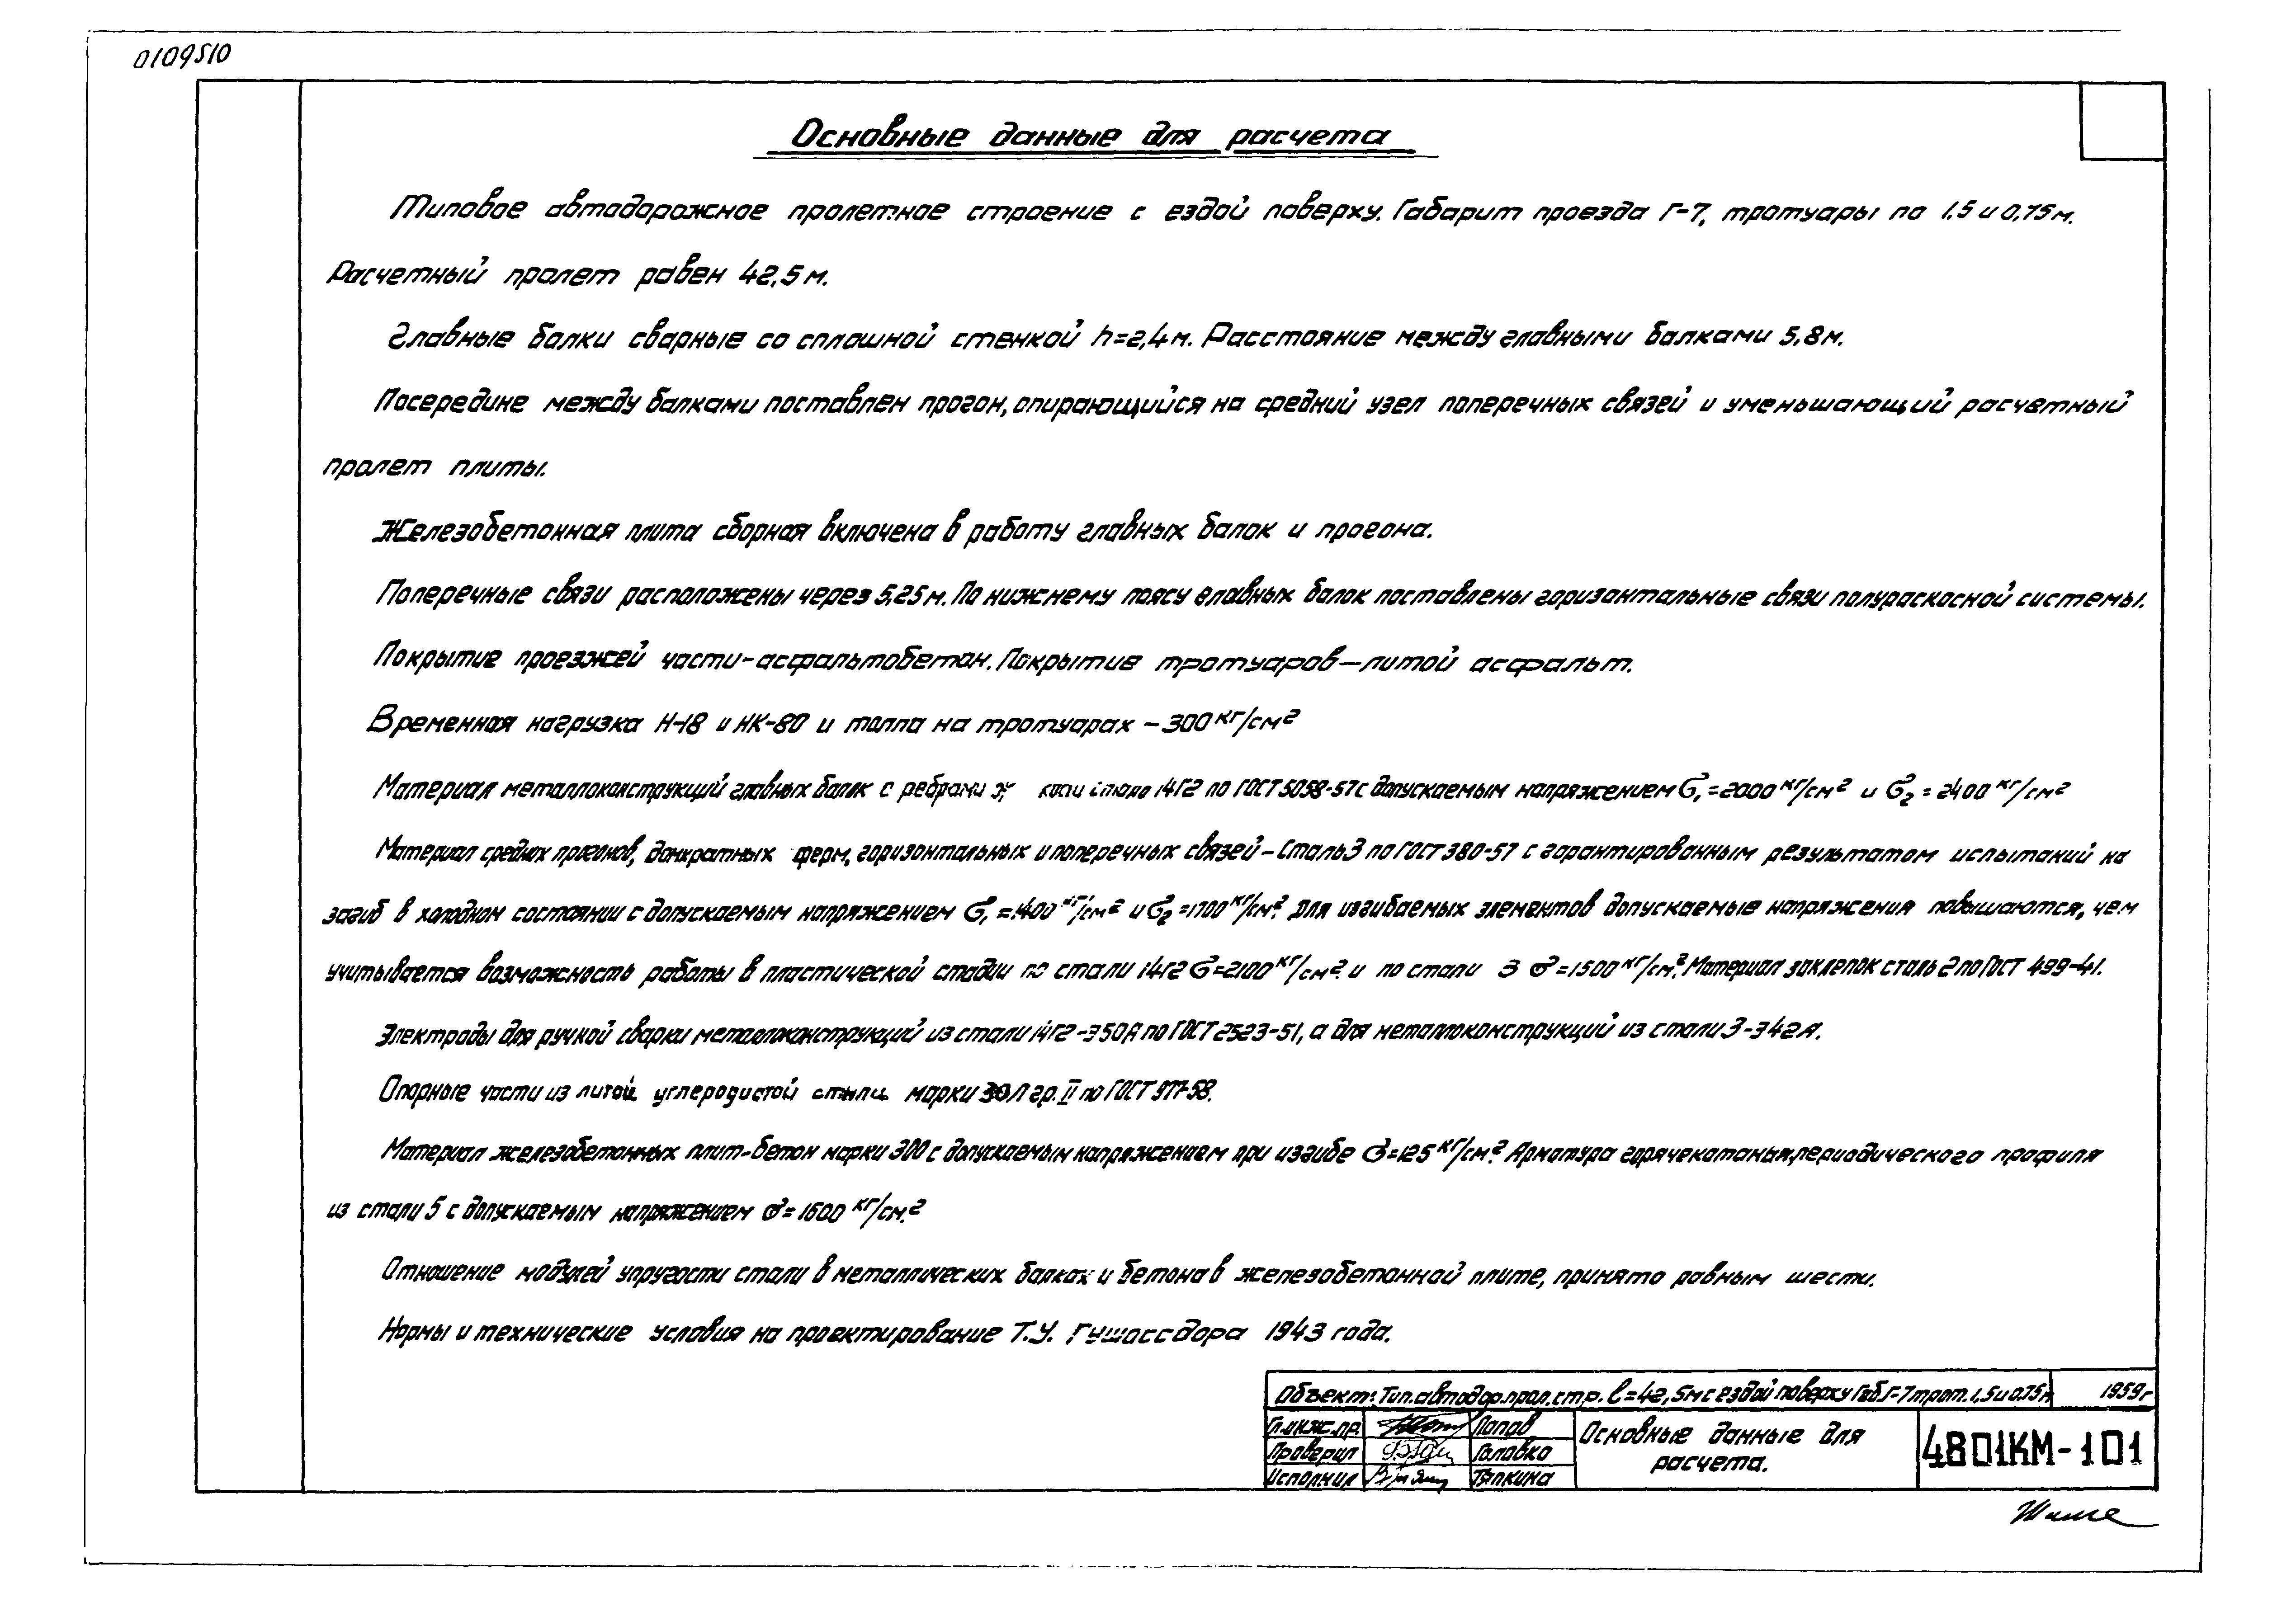 0109510
Основные данные для расчета
Типовое автодорожное пролетное строение с ездой поверху. Габарит проезда Г-7, тротуары по 1,5 и 0,75 м.
Расчетный пролет равен 42,5 м.
Главные балки сварные со сплошной стенкой h=2,4 м. Расстояние между главными балками 5,8 м.
Посередине между балками поставлен прогон, опирающийся на средний узел поперечных связей и уменьшающий расчетный
пролет плиты.
Железобетонная плита сборная включена в работу главных балок и прогона.
Поперечные связи расположены через 5,25 м. По нижнему поясу главных балок поставлены горизонтальные связи полураскосной системы.
Покрытие проезжей части-асфальтобетон. Покрытие тротуаров-литой асфальт.
Временная нагрузка Н-18 и НК-80 и толпа на тротуарах - 300 кг/см²
Материал металлоконструкций главных балок с ребрами 14Г2 по ГОСТ 5058-57 с допускаемым напряжением σ₁=2000 кг/см² и σ₂=2400 кг/см²
Материал средних прогонов, домкратных ферм, горизонтальных и поперечных связей-Сталь 3 по ГОСТ 380-57 с гарантированным результатом испытаний на
загиб в холодном состоянии с допускаемым напряжением σ₁=1400 кг/см² и σ₂=1700 кг/см². Для изгибаемых элементов допускаемые напряжения повышаются, чем
учитывается возможность работы в пластической стадии по стали 14Г2 σ=2100 кг/см². и по стали 3 σ=1500 кг/см². Материал заклепок сталь 2 по ГОСТ 499-41.
Электроды для ручной сварки металлоконструкций из стали 14Г2-Э50А по ГОСТ 2523-51, а для металлоконструкций из стали 3-Э42А.
Опорные части из литой углеродистой стали марки 30Л гр. II по ГОСТ 977-58.
Материал железобетонных плит-бетон марки 300 с допускаемым напряжением при изгибе σ=125 кг/см². Арматура горячекатаная, периодического профиля
из стали 5 с допускаемым напряжением σ=1600 кг/см.²
Отношение модулей упругости стали в металлических балках и бетона в железобетонной плите, принято равным шести.
Нормы и технические условия на проектирование Т.У. Гушосдора 1943 года.
Объект: Тип.автодор.прол.стр. l=42,5м с ездой поверху Габ.Г-7 трот.1,5 и 0,75м. 1959г
Гл.инж.пр. Попов
Проверил Головко
Исполнил Тяпкина
Основные данные для
расчета.
4801КМ-101